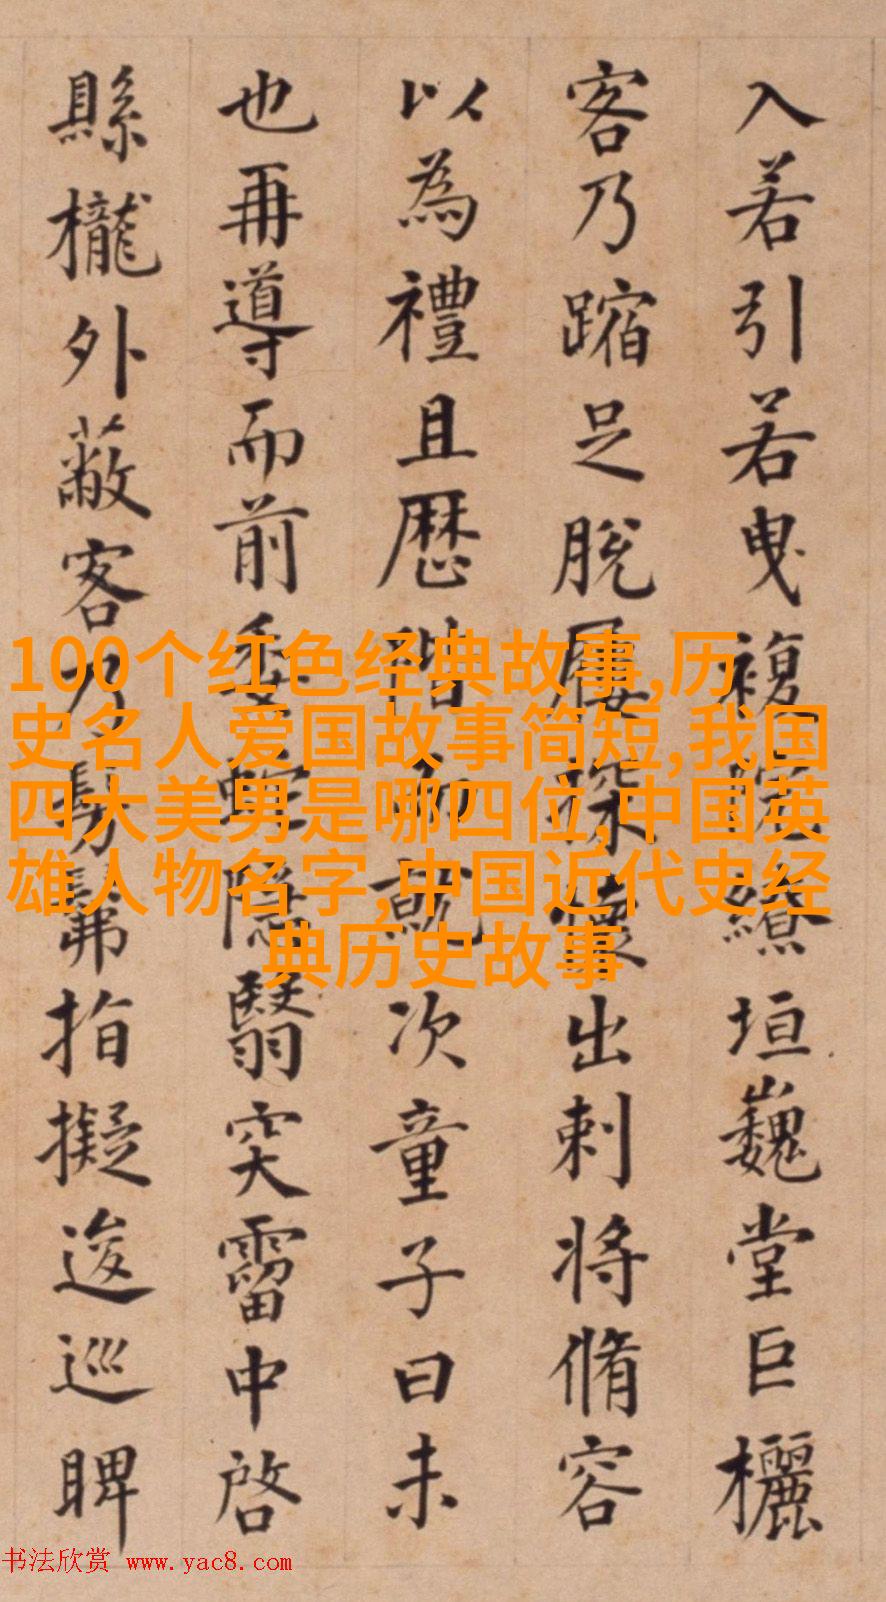 入若引若曳複繚垣巍堂巨欐
客乃蹜足脫屨探懷出刺將脩容
以為禮且歷階而就次童子曰未
也再導而前委蛇隱翳突霤中啓
縣櫳外蔽客乃髣髴指擬逡巡睥
100个红色经典故事,历
史名人爱国故事简短,我国
四大美男是哪四位,中国英
雄人物名字,中国近代史经
典历史故事
书法欣赏 www.yac8.com